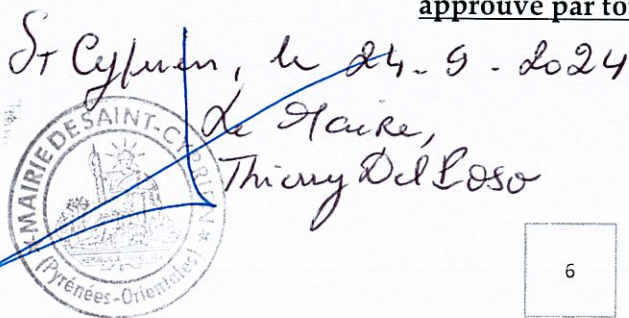 approuvé par tou
St Cyprien, le 24-9-2024
Le Maire,
Thierry Del Poso
MAIRIE DE SAINT-CYPRIEN
(Pyrénées-Orientales)
6